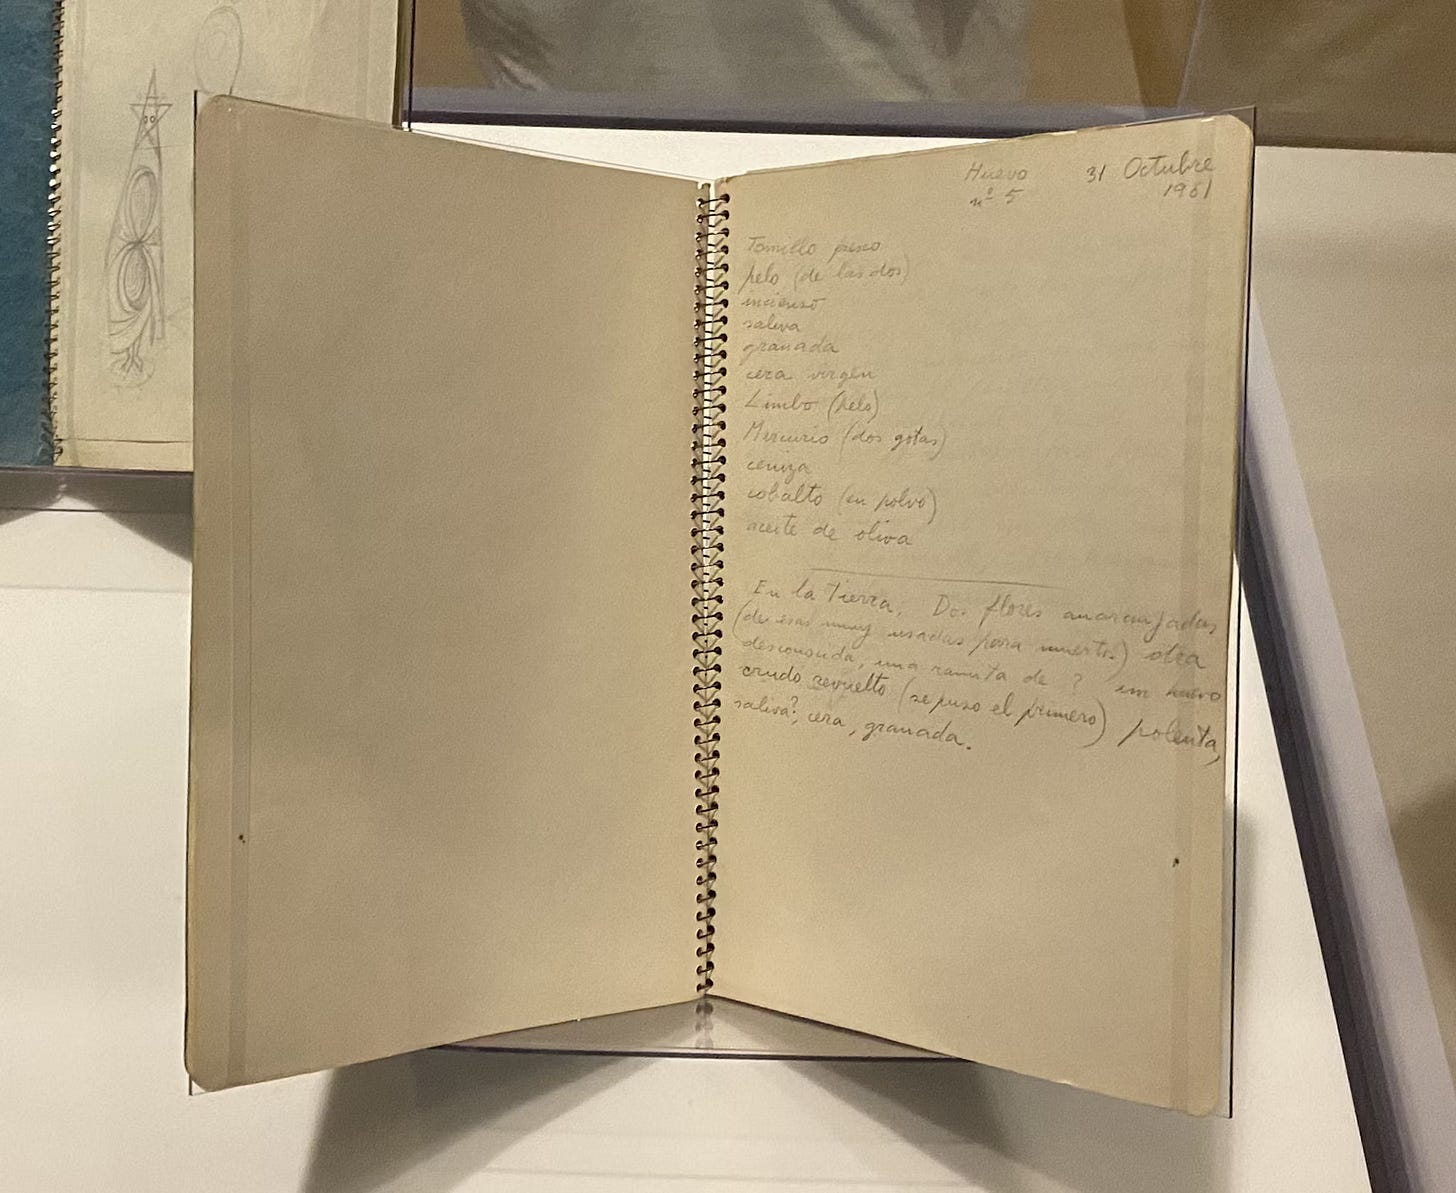 Huevo 31 Octubre
nº 5 1961
Tomillo fresco
pelo (de las dos)
incienso
saliva
granada
cera virgen
Limbo (pelo)
Mercurio (dos gotas)
ceniza
cobalto (en polvo)
aceite de oliva
En la Tierra. Dos flores anaranjadas
(de esas muy usadas para muertos) otra
desconocida, una ramita de ? un huevo
crudo revuelto (se puso el primero) polenta,
saliva?, cera, granada.